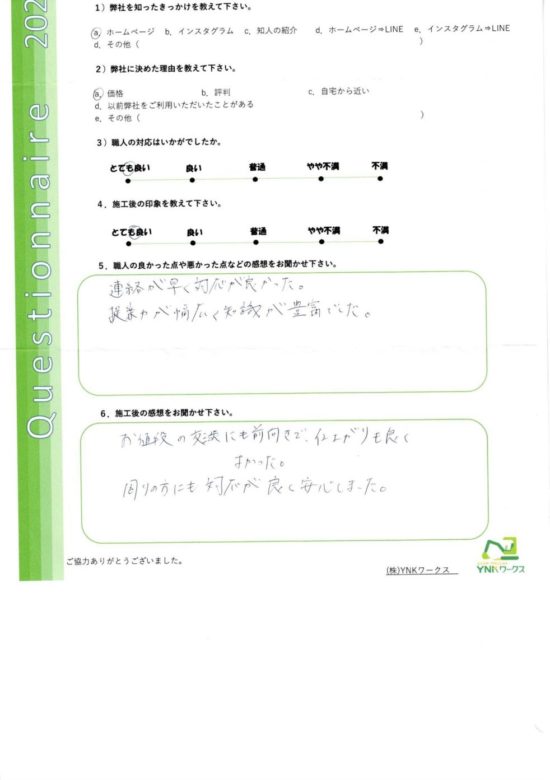 Questionnaire 202
1）弊社を知ったきっかけを教えて下さい。
a, ホームページ b, インスタグラム c, 知人の紹介 d, ホームページ⇒LINE e, インスタグラム⇒LINE
d, その他（ ）
2）弊社に決めた理由を教えて下さい。
a, 価格 b, 評判 c, 自宅から近い
d, 以前弊社をご利用いただいたことがある
e, その他（ ）
3）職人の対応はいかがでしたか。
とても良い 良い 普通 やや不満 不満
4．施工後の印象を教えて下さい。
とても良い 良い 普通 やや不満 不満
5．職人の良かった点や悪かった点などの感想をお聞かせ下さい。
連絡が早く対応が良かった。
提案力が幅広く知識が豊富でした。
6．施工後の感想をお聞かせ下さい。
お値段の交渉にも前向きで、仕上がりも良く
よかった。
周りの方にも対応が良く安心しました。
ご協力ありがとうございました。
(株)YNKワークス
YNKワークス